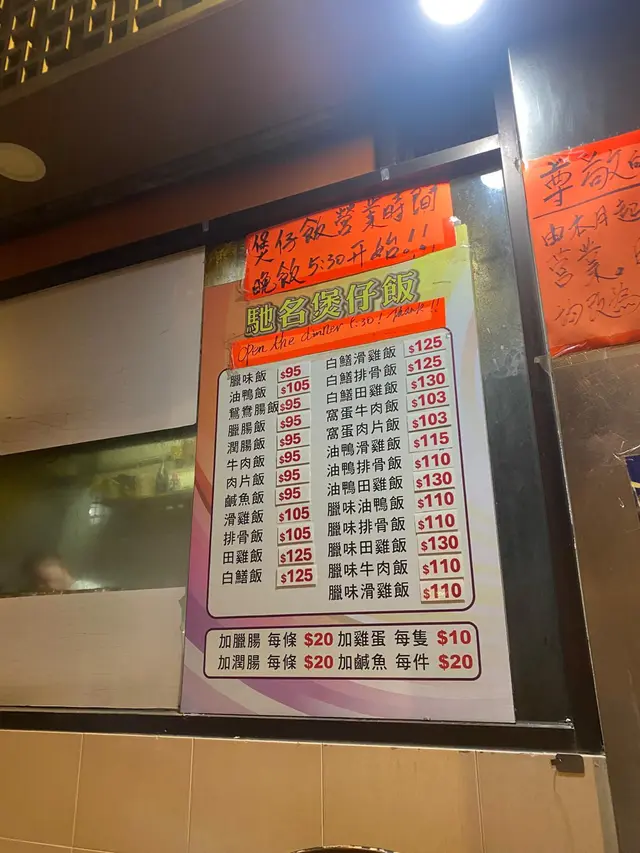 煲仔飯營業時間
晚飯5:30開始!!
馳名煲仔飯
Open the dinner 5:30! Thank!!
臘味飯 $95
油鴨飯 $105
鴛鴦腸飯 $95
臘腸飯 $95
潤腸飯 $95
牛肉飯 $95
肉片飯 $95
鹹魚飯 $95
滑雞飯 $105
排骨飯 $105
田雞飯 $125
白鱔飯 $125
白鱔滑雞飯 $125
白鱔排骨飯 $125
白鱔田雞飯 $130
窩蛋牛肉飯 $103
窩蛋肉片飯 $103
油鴨滑雞飯 $115
油鴨排骨飯 $110
油鴨田雞飯 $130
臘味油鴨飯 $110
臘味排骨飯 $110
臘味田雞飯 $130
臘味牛肉飯 $110
臘味滑雞飯 $110
加臘腸 每條 $20 加雞蛋 每隻 $10
加潤腸 每條 $20 加鹹魚 每件 $20
尊敬的
由本月起
營業。